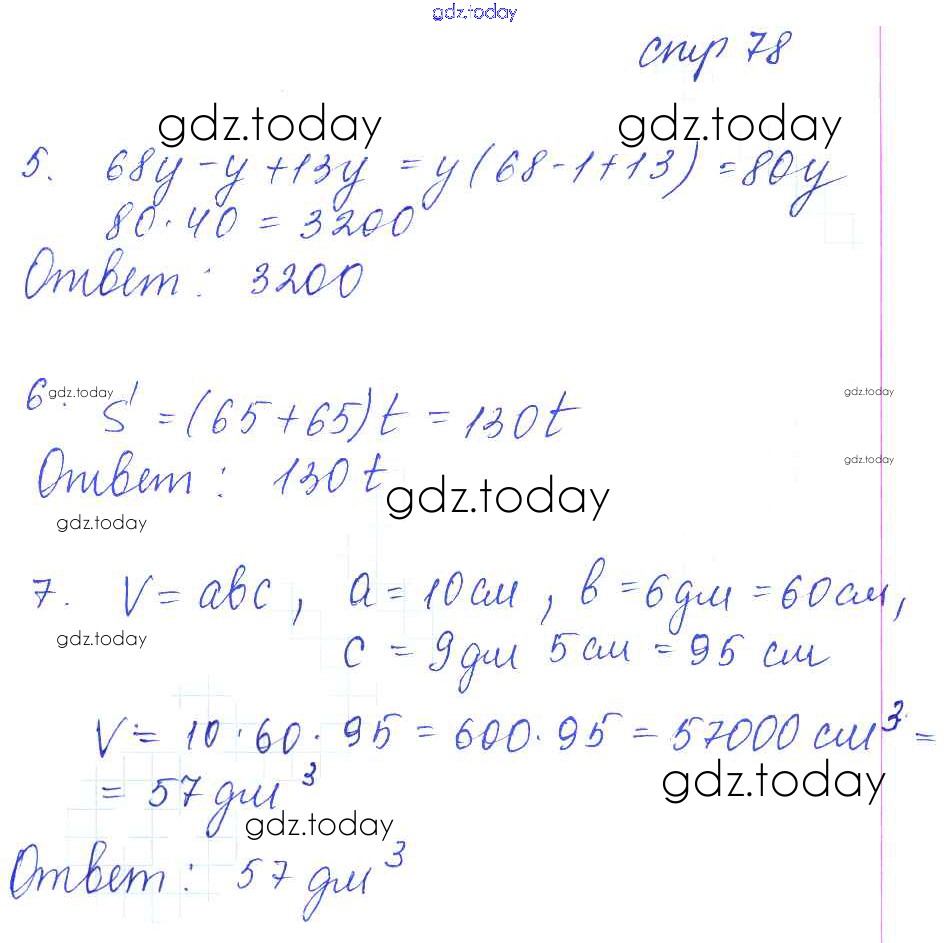 gdz.today
стр 78
gdz.today gdz.today
5. 68y - y + 13y = y(68-1+13) = 80y
80·40 = 3200
Ответ: 3200
6. S = (65+65)t = 130t
gdz.today gdz.today
Ответ: 130t
gdz.today
gdz.today
gdz.today
7. V = abc, a = 10 см, b = 6 дм = 60 см,
gdz.today
c = 9 дм 5 см = 95 см
V = 10·60·95 = 600·95 = 57000 см³ =
gdz.today
= 57 дм³
gdz.today
Ответ: 57 дм³